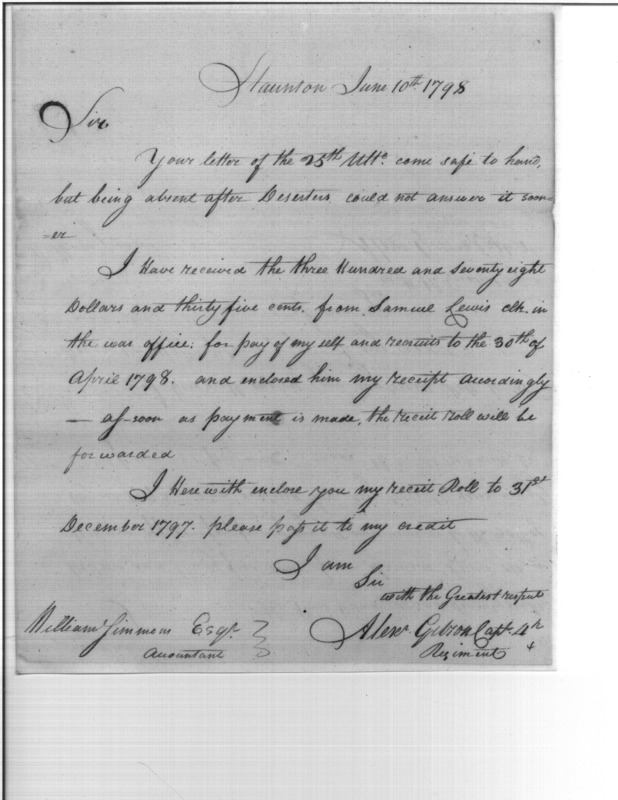 Staunton June 10th 1798
Sir,
Your letter of the 25th Ulto. come safe to hand,
but being absent after Deserters could not answer it soon=
=er
I Have received the three Hundred and seventy eight
Dollars and thirty five cents. from Samuel Lewis clk. in
the war office; for pay of my self and recruits to the 30th of
April 1798. and enclosed him my receipt accordingly
— as soon as payment is made, the receit roll will be
forwarded
I Here with enclose you my receit Roll to 31st
December 1797. please pass it to my credit
I am
Sir
with the Greatest respect
William Simmons Esqr.
Alexr. Gibson Capt. 4th
Accountant
Regiment